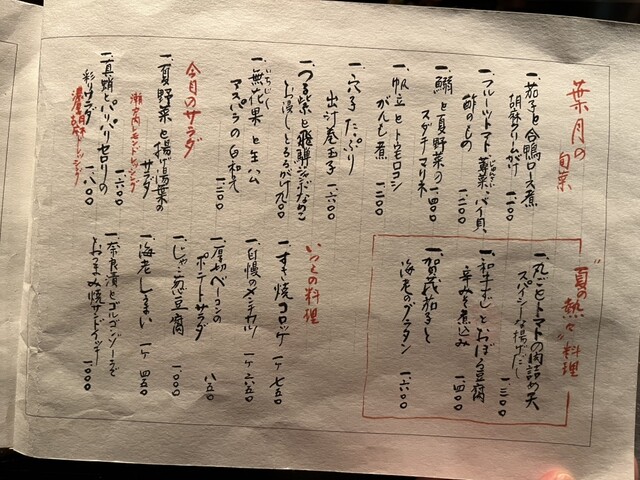 葉月の旬菜
一、茄子と合鴨ロース煮
胡麻クリームがけ 一二〇〇
一、フルーツトマト 蓴菜 バイ貝
酢のもの 一二〇〇
一、鰯と夏野菜の
スダチマリネ 一四〇〇
一、帆立とトウモロコシ
がんも煮 一二〇〇
一、穴子たっぷり
出汁巻玉子 一六〇〇
一、つる紫と飛騨ジャンボなめこ
お浸しとろろがけ 九〇〇
一、無花果と生ハム
いちじく
アスパラの白和え 一三〇〇
今月のサラダ
一、夏野菜と揚げ湯葉の
サラダ
瀬戸内レモンドレッシング 一六〇〇
一、真蛸とパリパリセロリの
彩りサラダ 一八〇〇
"夏の熱々"料理
一、丸ごとトマトの肉詰め天
スパイシーな揚げだし 一三〇〇
一、和牛すじとおぼろ豆腐
辛みそ煮込み 一四〇〇
一、賀茂茄子と
海老のグラタン 一六〇〇
いつもの料理
一、すき焼コロッケ 一ケ 七五〇
一、自慢のメンチカツ 一ケ 六五〇
一、厚切ベーコンの
ポテトサラダ 八五〇
一、じゃこ葱豆腐 一〇〇〇
一、海老しゅうまい 一ケ 四五〇
一、奈良漬とゴルゴンゾーラと
おつまみ焼サンドイッチ 一〇〇〇